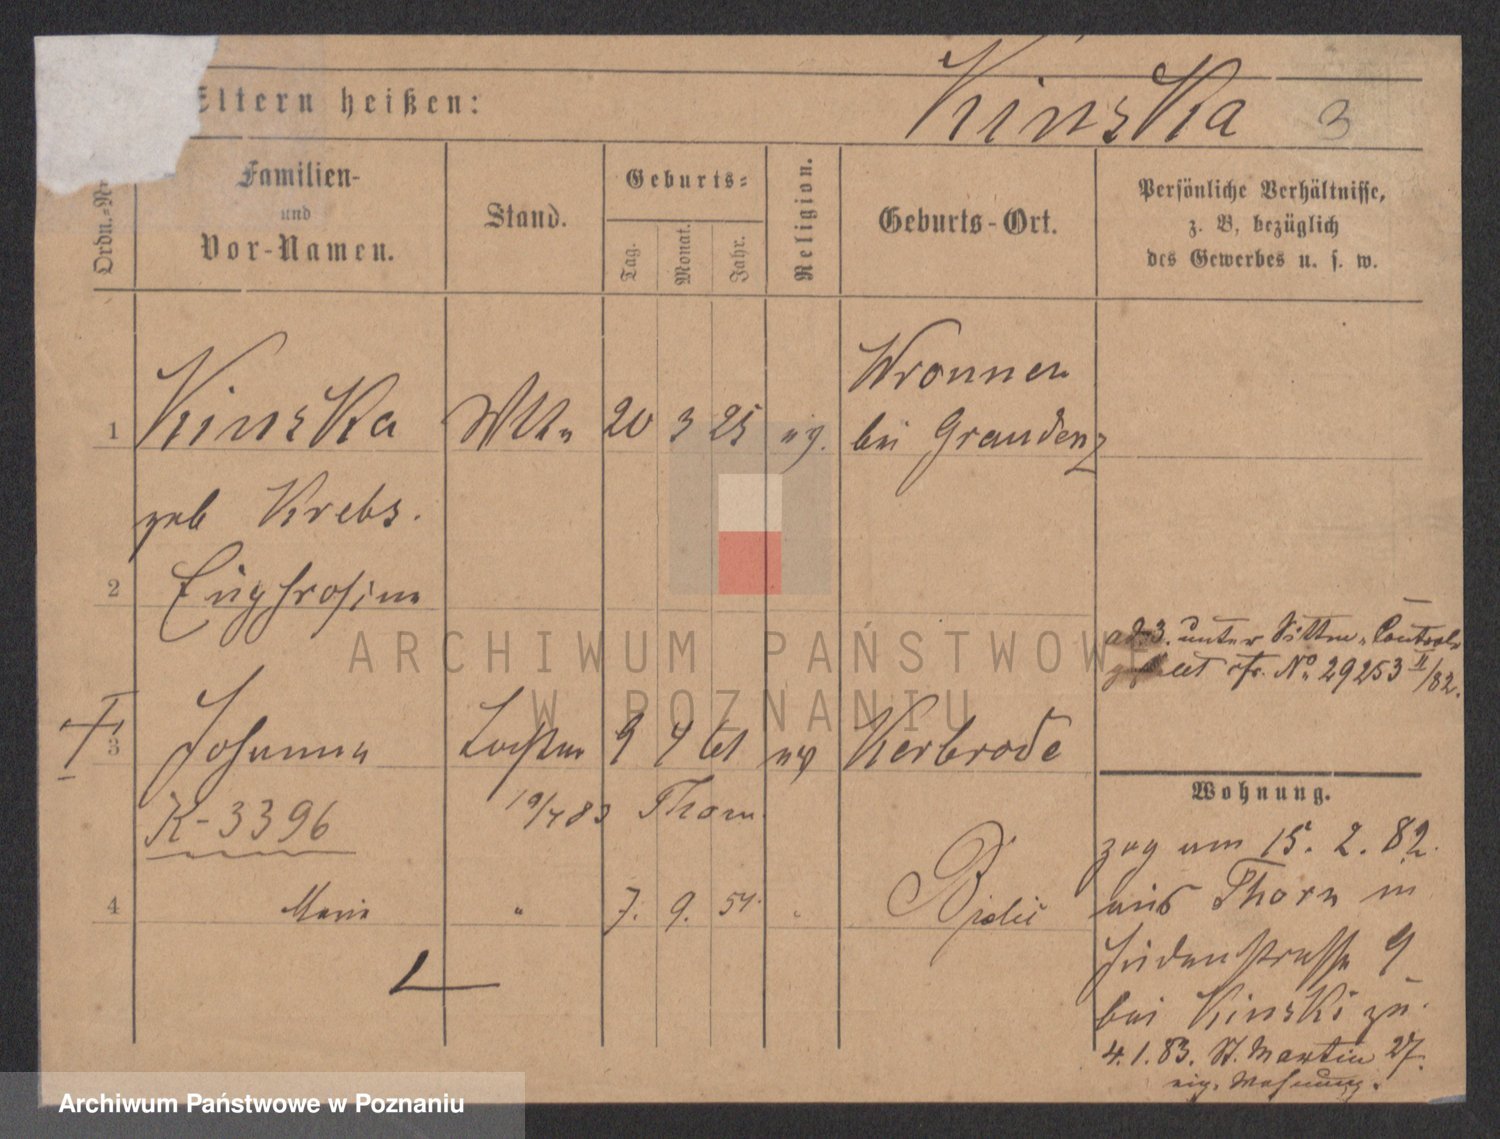 Eltern heißen:
Kinska 3
Ordn.-Nr
Familien-
und
Vor-Namen.
Stand.
Geburts-
Tag.
Monat.
Jahr.
Religion.
Geburts-Ort.
Persönliche Verhältnisse,
z. B. bezüglich
des Gewerbes u. s. w.
1 Kinska 20 3 25
bei Graudenz
geb Krebs.
2
ad 3. unter Sitten-Controle
gestellt cfr. No. 29253 II/82.
3 Johanna Tochter 9 4 61 Kerbrode
K-3396
19/4 83 Thorn
4 Marie " 7. 9. 54. "
Wohnung.
zog am 15. 2. 82.
aus Thorn in
Judenstrasse 9
bei Kinski zu.
4.1.83. St. Martin 27.
eig. Wohnung.
ARCHIWUM PAŃSTWOWE
W POZNANIU
Archiwum Państwowe w Poznaniu